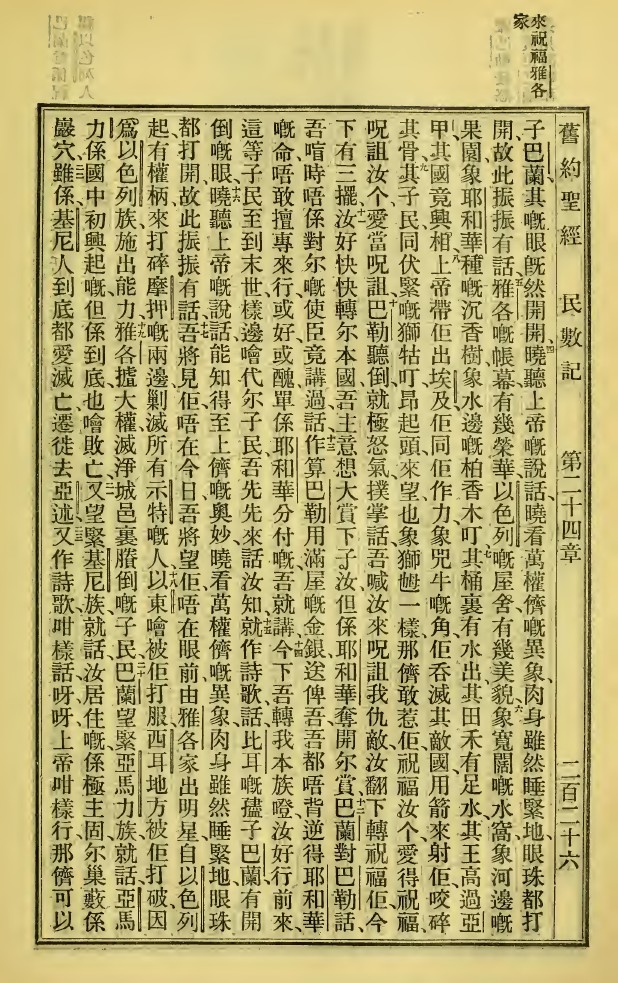 來祝福雅各
家
舊約聖經 民數記 第二十四章 二百二十六
子巴蘭其嘅眼旣然開開曉聽上帝嘅說話曉看萬權儕嘅異象肉身雖然睡緊地眼珠都打
開故此振振有話雅各嘅帳幕有幾榮華以色列嘅屋舍有幾美貌象寬闊嘅水窩象河邊嘅
果園象耶和華種嘅沉香樹象水邊嘅柏香木叮其桶裏有水出其田禾有足水其王高過亞
甲其國竟興相上帝帶佢出埃及佢同佢作力象兕牛嘅角佢吞滅其敵國用箭來射佢咬碎
其骨其子民同伏緊嘅獅牯叮昻起頭來望也象獅𡜵一樣那儕敢惹佢祝福汝个愛得祝福
呪詛汝个愛當呪詛巴勒聽倒就極怒氣撲掌話吾喊汝來呪詛我仇敵汝翻下轉祝福佢今
下有三擺汝好快快轉尔本國吾主意想大賞下子汝但係耶和華奪開尔賞巴蘭對巴勒話
吾喧時唔係對尔嘅使臣竟講過話作算巴勒用滿屋嘅金銀送俾吾吾都唔背逆得耶和華
嘅命唔敢擅專來行或好或醜單係耶和華分付嘅吾就講今下吾轉我本族噔汝好行前來
這等子民至到末世樣邊噲代尔子民吾先先來話汝知就作詩歌話比耳嘅儘子巴蘭有開
倒嘅眼曉聽上帝嘅說話能知得至上儕嘅奧妙曉看萬權儕嘅異象肉身雖然睡緊地眼珠
都打開故此振振有話吾將見佢唔在今日吾將望佢唔在眼前由雅各家出明星自以色列
起有權柄來打碎摩押嘅兩邊剿滅所有示特嘅人以東噲被佢打服西耳地方被佢打破因
爲以色列族施出能力雅各攎大權滅淨城邑裏賸倒嘅子民巴蘭望緊亞馬力族就話亞馬
力係國中初興起嘅但係到底也噲敗亡又望緊基尼族就話汝居住嘅係極主固尔巢藪係
巖穴雖係基尼人到底都愛滅亡遷徙去亞述又作詩歌咁樣話呀呀上帝咁樣行那儕可以